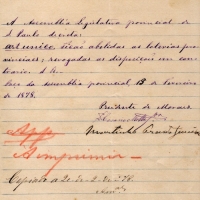 A Assembléa Legislativa provincial de
S. Paulo decreta:
Art. unico. Ficão abolidas as loterias pro-
vinciaes; revogadas as disposições em con-
trario. S. R.
Paço da Assembléa provincial, 13 de Fevereiro
de 1878.
Prudente de Moraes
Martinho Prado Junior
A imprimir
Copiado a 20 de 2 de 78.